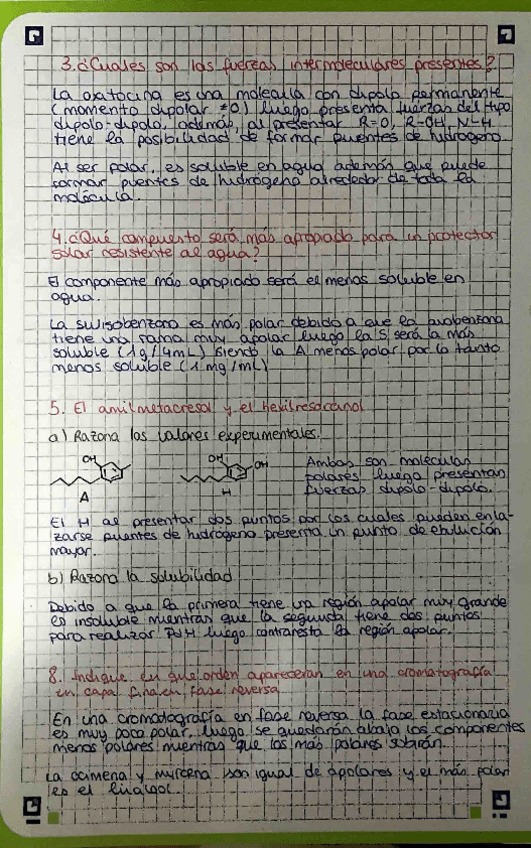 3. ¿Cuales son las fuerzas intermoleculares presentes?
La oxitocina es una molecula con dipolo permanente
(momento dipolar ≠0) luego presenta fuerzas del tipo
dipolo-dipolo, además, al presentar R=O, R-OH, N-H
tiene la posibilidad de formar puentes de hidrogeno
Al ser polar, es soluble en agua además que puede
formar puentes de hidrógeno alrededor de toda la
molécula.
4. ¿Qué compuesto será más apropiado para un protector
solar resistente al agua?
El componente más apropiado será el menos soluble en
agua.
La sulisobenzona es más polar debido a que la avobenzona
tiene una rama muy apolar luego la S será la más
soluble (1g/4mL) siendo la A menos polar por lo tanto
menos soluble (1 mg/mL)
5. El amilmetacresol y el hexilresorcinol
a) Razona los valores experimentales.
OH
OH
OH
A
H
Ambas son moléculas
polares luego presentan
fuerzas dipolo-dipolo.
El H al presentar dos puntos por los cuales pueden enla-
zarse puentes de hidrógeno presenta un punto de ebullución
mayor.
b) Razona la solubilidad
Debido a que la primera tiene una región apolar muy grande
es insoluble mientras que la segunda tiene dos puntos
para realizar PdH luego contraresta la región apolar.
8. Indique en que orden apareceran en una cromatografía
en capa fina en fase reversa
En una cromatografía en fase reversa la fase estacionaria
es muy poco polar, luego se quedarán abajo los componentes
menos polares mientras que los más polares subirán.
La ocimena y mircena son igual de apolares y el más polar
es el linalol.